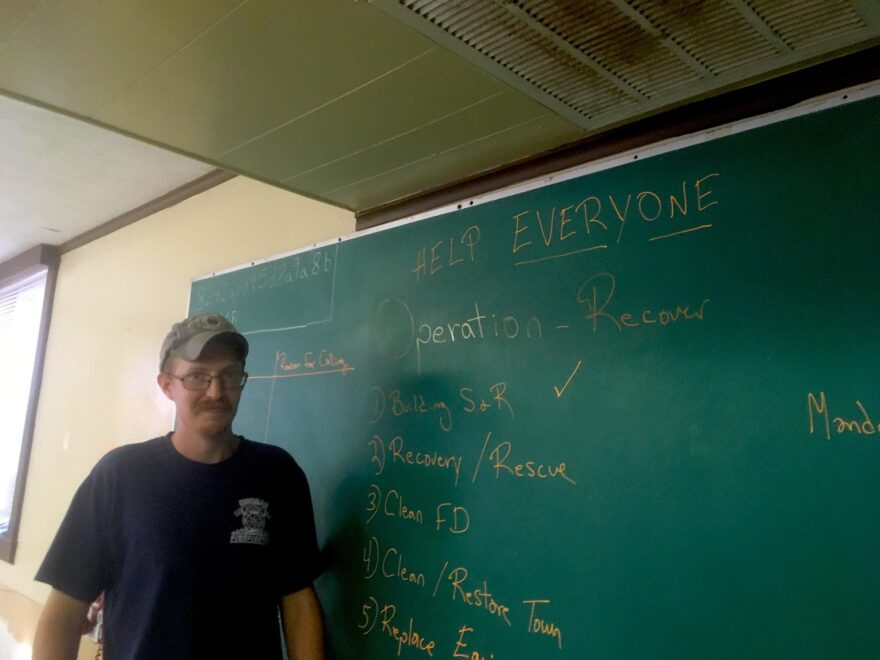 HELP EVERYONE
Operation - Recover
Reason For Calling
1) Building S&R ✓
2) Recovery / Rescue
3) Clean FD
4) Clean / Restore Town
5) Replace